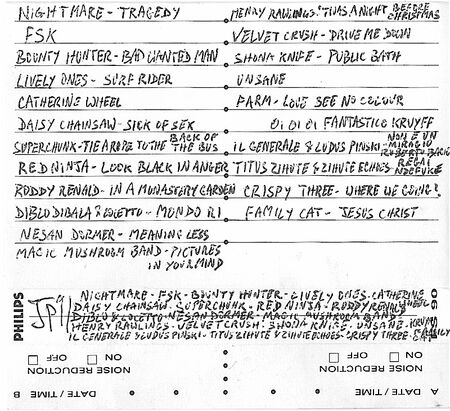 NIGHTMARE - TRAGEDY
FSK
BOUNTY HUNTER - BAD WANTED MAN
LIVELY ONES - SURF RIDER
CATHERINE WHEEL
DAISY CHAINSAW - SICK OF SEX
SUPERCHUNK - TIE A ROPE TO THE BACK OF THE BUS
RED NINJA - LOOK BLACK IN ANGER
RODDY RENALD - IN A MONASTERY GARDEN
DIBLO DIBALA & LOKETO - MONDO RI
NESAN DORMER - MEANING LESS
MAGIC MUSHROOM BAND - PICTURES
IN YOUR MIND
HENRY RAWLINGS: 'TWAS A NIGHT BEFORE CHRISTMAS
VELVET CRUSH - DRIVE ME DOWN
SHONA KNIFE - PUBLIC BATH
UNSANE
FARM - LOVE SEE NO COLOUR
OI OI OI FANTASTICO KRUYFF
IL GENERALE & LUDUS PINSKI - NON E UN MIRAGIO ROBERTO BAGIO
TITUS ZIHUTE & ZIHUTE ECHOES - REGAI
CRISPY THREE - WHERE WE GOING?
FAMILY CAT - JESUS CHRIST
PHILIPS
JP 11
NIGHTMARE - FSK - BOUNTY HUNTER - LIVELY ONES. CATHERINE WHEEL
DAISY CHAINSAW - SUPERCHUNK - RED NINJA - RODDY RENALD
DIBLO & LOKETO - NESAN DORMER - MAGIC MUSHROOM BAND
HENRY RAWLINGS - VELVET CRUSH: SHONA KNIFE - UNSANE - KRUYFF
IL GENERALE & LUDUS PINSKI - TITUS ZIHUTE & ZIHUTE ECHOES - CRISPY THREE - FAMILY CAT
NOISE REDUCTION
ON
OFF
NOISE REDUCTION
ON
OFF
B DATE / TIME
A DATE / TIME